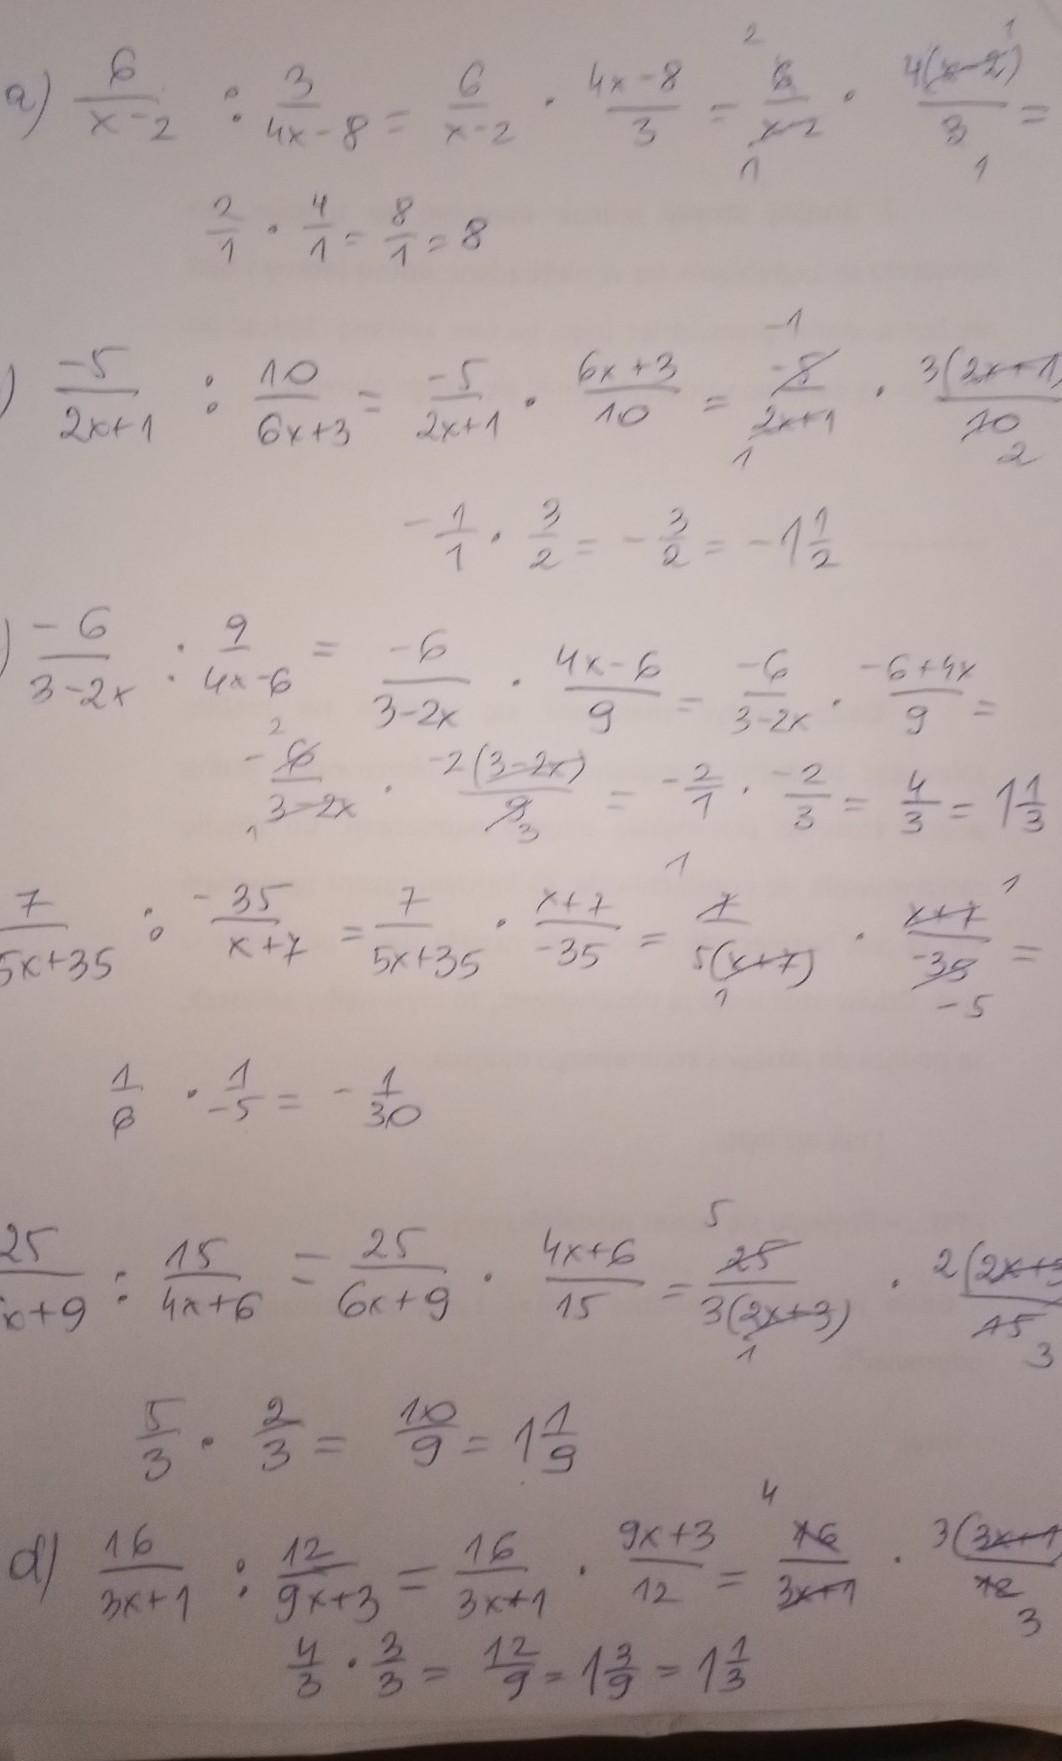 a) 6/(x-2) : 3/(4x-8) = 6/(x-2) · (4x-8)/3 = 2 6/(x-2) 1 · 4(x-2) 1/3 1 =
2/1 · 4/1 = 8/1 = 8
) -5/(2x+1) : 10/(6x+3) = -5/(2x+1) · (6x+3)/10 = -1 -5/(2x+1) 1 · 3(2x+1)/10 2
-1/1 · 3/2 = -3/2 = -1 1/2
) -6/(3-2x) : 9/(4x-6) = -6/(3-2x) · (4x-6)/9 = -6/(3-2x) · (-6+4x)/9 =
2 -6/(3-2x) 1 · -2(3-2x)/9 3 = -2/1 · -2/3 = 4/3 = 1 1/3
7/(5x+35) : -35/(x+7) = 7/(5x+35) · (x+7)/-35 = 1 7/5(x+7) 1 · (x+7) 1/-35 -5 =
1/6 · 1/-5 = -1/30
25/x+9 : 15/(4x+6) = 25/(6x+9) · (4x+6)/15 = 5 25/3(2x+3) 1 · 2(2x+3/15 3
5/3 · 2/3 = 10/9 = 1 1/9
d) 16/(3x+1) : 12/(9x+3) = 16/(3x+1) · (9x+3)/12 = 4 16/(3x+1) · 3(3x+1)/12 3
4/3 · 3/3 = 12/9 = 1 3/9 = 1 1/3